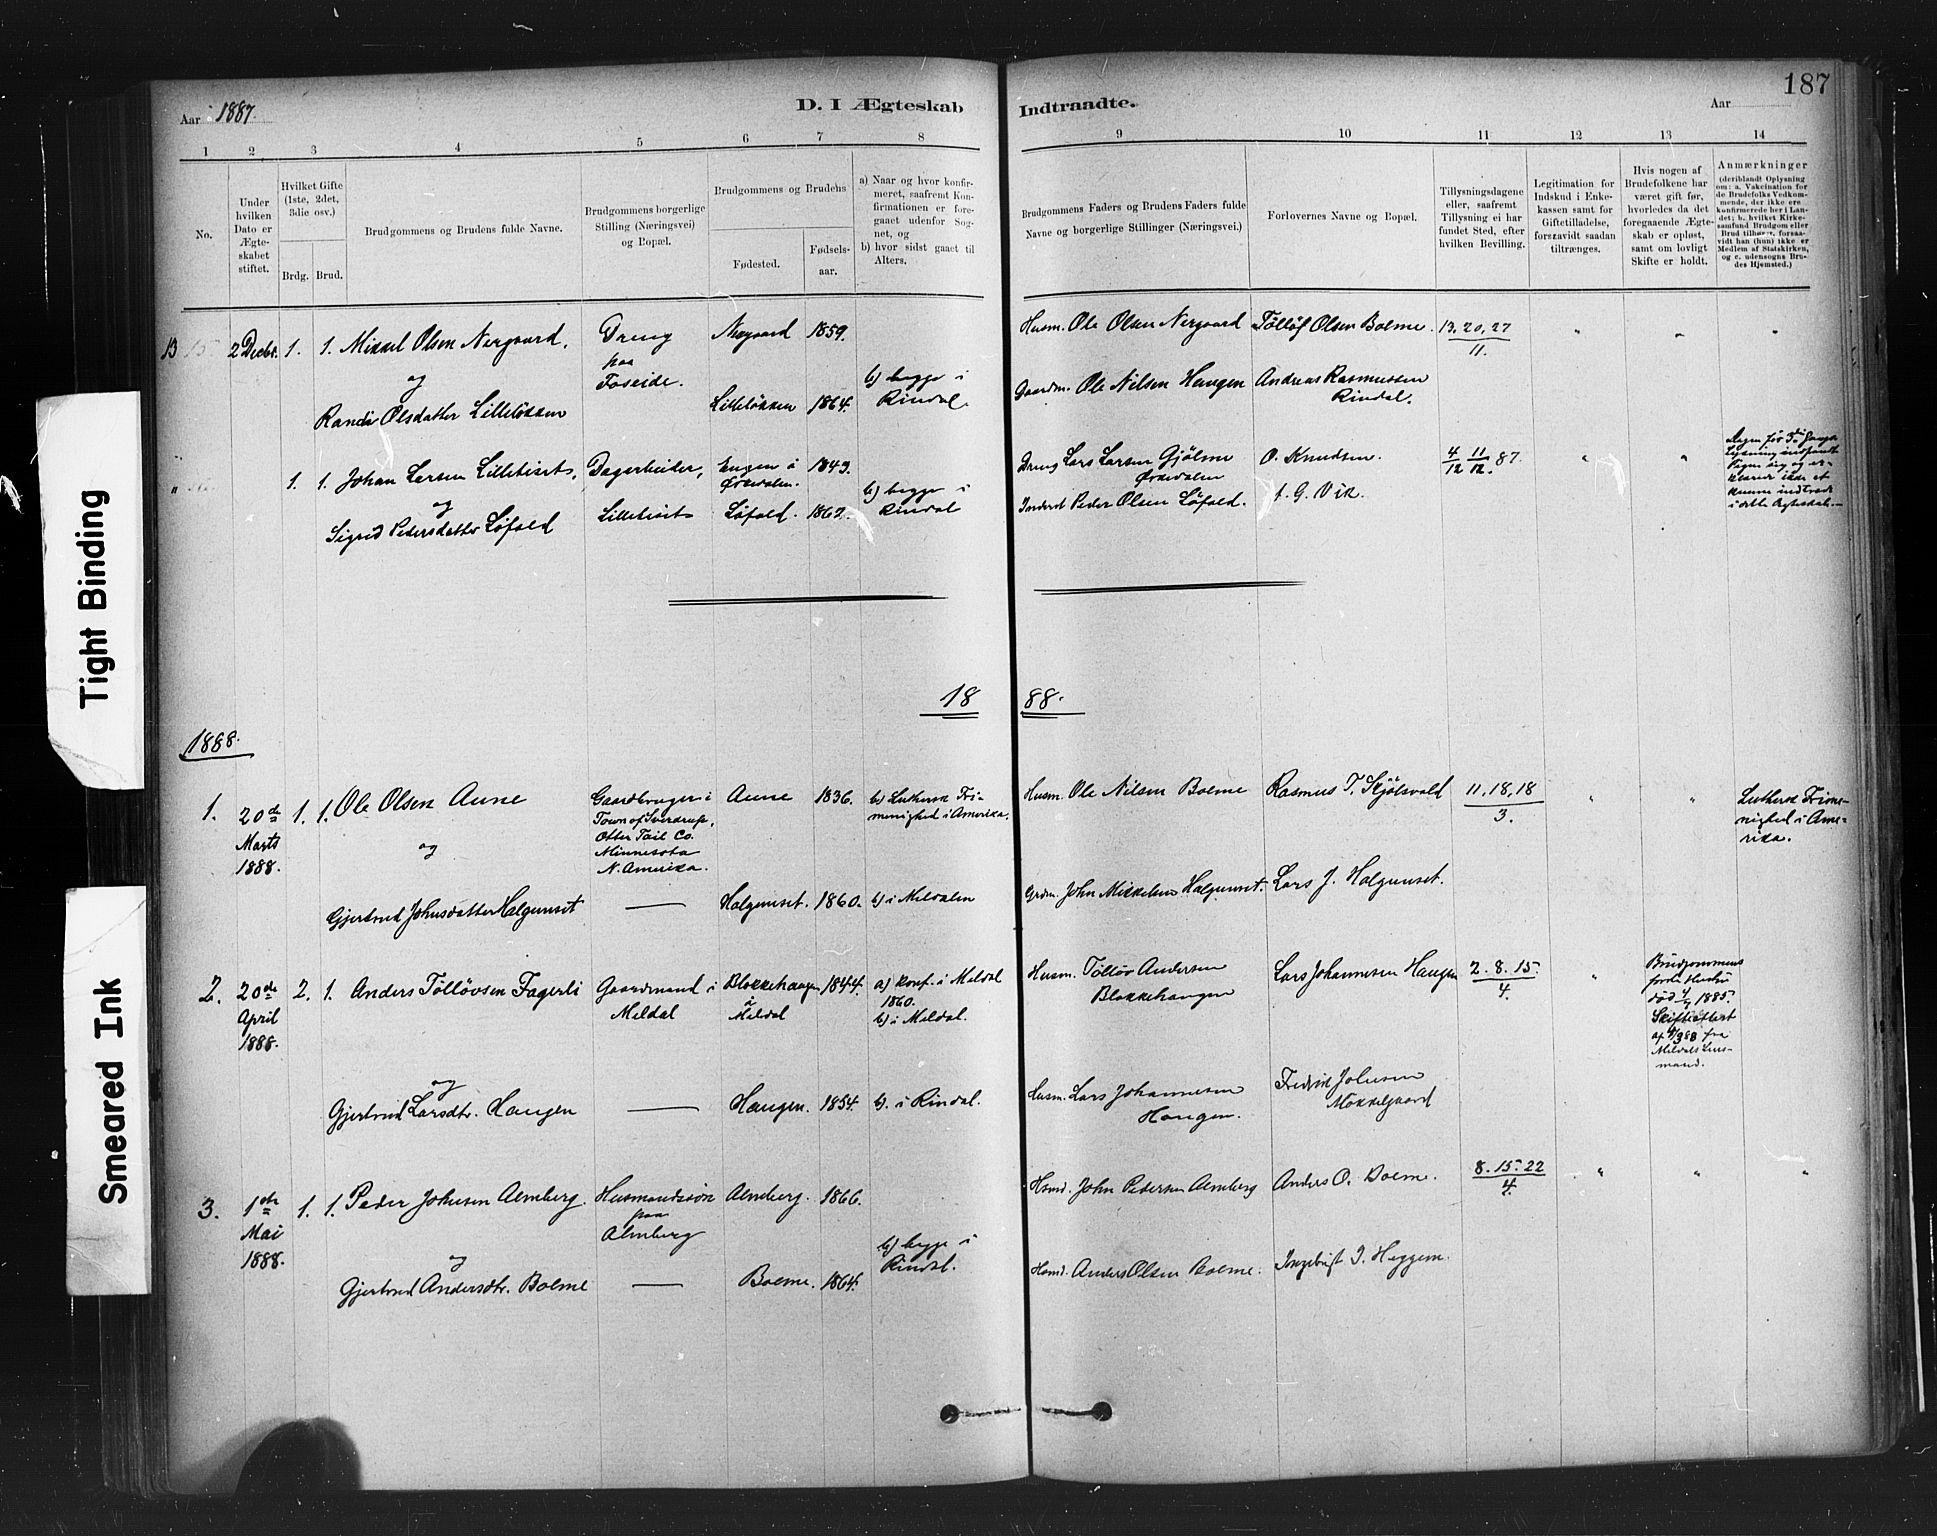 187
Aar 1887.
D. I Ægteskab Indtraadte.
Aar
1 2 3 4 5 6 7 8 9 10 11 12 13 14
No.
Under
hvilken
Dato er
Ægte-
skabet
stiftet.
Hvilket Gifte
(1ste, 2det,
3die osv.)
Brdg. Brud.
Brudgommens og Brudens fulde Navne.
Brudgommens borgerlige
Stilling (Næringsvei)
og Bopæl.
Brudgommens og Brudens
Fødested.
Fødsels-
aar.
a) Naar og hvor konfir-
meret, saafremt Kon-
firmationen er fore-
gaaet udenfor Sog-
net, og
b) hvor sidst gaaet til
Alters.
Brudgommens Faders og Brudens Faders fulde
Navne og borgerlige Stillinger (Næringsvei.)
Forlovernes Navne og Bopæl.
Tillysningsdagene
eller, saafremt
Tillysning ei har
fundet Sted, efter
hvilken Bevilling.
Legitimation for
Indskud i Enke-
kassen samt for
Giftetilladelse,
forsaavidt saadan
tiltrænges.
Hvis nogen af
Brudefolkene har
været gift før,
hvorledes da det
foregaaende Ægte-
skab er opløst,
samt om lovligt
Skifte er holdt.
Anmærkninger
(deriblandt Oplysning
om: a. Vakcination for
de Brudefolks Vedkom-
mende, der ikke ere
konfirmerede her i Lan-
det; b. hvilket Kirke-
samfund Brudgom eller
Brud tilhører, forsaa-
vidt han (hun) ikke er
Medlem af Statskirken,
og c. udensogns Bru-
des Hjemsted.)
13 15 2 Decbr. 1. 1. Mikkel Olsen Nergaard, Dreng Nergaard 1859. Husm. Ole Olsen Nergaard Tølløf Olsen Bolme. 13, 20, 27
og paa 11.
Foseide. b) begge i Gaardm. Ole Nilsen Haugen Andreas Rasmussen
Randi Olsdatter Lilleløkken Lilleløkken 1864. Rindal. Rindal.
" 1. 1. Johan Larsen Lilletisets, Dagarbeider, Engen i 1843. Dreng Lars Larsen Gjølme O. Knudsen. 4/12 11/12 87.
og Ørkedalen. b) begge i Ørkedalen
Sigrid Pedersdatter Løfald Lilletiset Løfald. 1867. Rindal Inderst Peder Olsen Løfald. f. G. Vik.
18 88.
1888.
1. 20de 1. 1. Ole Olsen Aune Gaardbruger i Aune 1836. b) Luthersk Fri- Husm. Ole Nilsen Bolme Rasmus T. Skjølsvold 11, 18, 18 Luthersk Frime-
Marts og Town of Sverdrup, menighed i Amerika. 3. nighed i Ame-
1888. Otter Tail Co. rika.
Minnesota
N. Amerika.
Gjertrud Johnsdatter Halgunset Halgunset. 1860. b) i Meldalen Grdm. John Mikkelsen Halgunset. Lars J. Halgunset.
2. 20de 2. 1. Anders Tølløvsen Fagerli Gaardmand i Blokkehaugen 1844. a) konf. i Meldal Husm. Tølløv Andersen Lars Johannesen Haugen 2. 8. 15. Brudgommens
April Meldal i 1860. Blokkehaugen 4. første Hustru
1888. Meldal b) i Meldal. død 4/7 1885.
Skifteattest
af 4/3 88 fra
Meldals Lens-
mand.
og
Gjertrud Larsdtr. Haugen Haugen. 1854. b). i Rindal. Husm. Lars Johannesen Fredrik Johnsen
Haugen. Mokkelgaard
3. 1ste 1. 1. Peder Johnsen Almberg. Husmandssøn Almberg. 1866. Husmd. John Pedersen Almberg Anders O. Bolme. 8. 15. 22
Mai paa 4.
1888. Almberg
og b) begge i
Gjertrud Andersdtr. Bolme Bolme. 1864. Rindal. Husmd. Anders Olsen Bolme. Ingebrigt I. Heggem.
Tight Binding
Smeared Ink